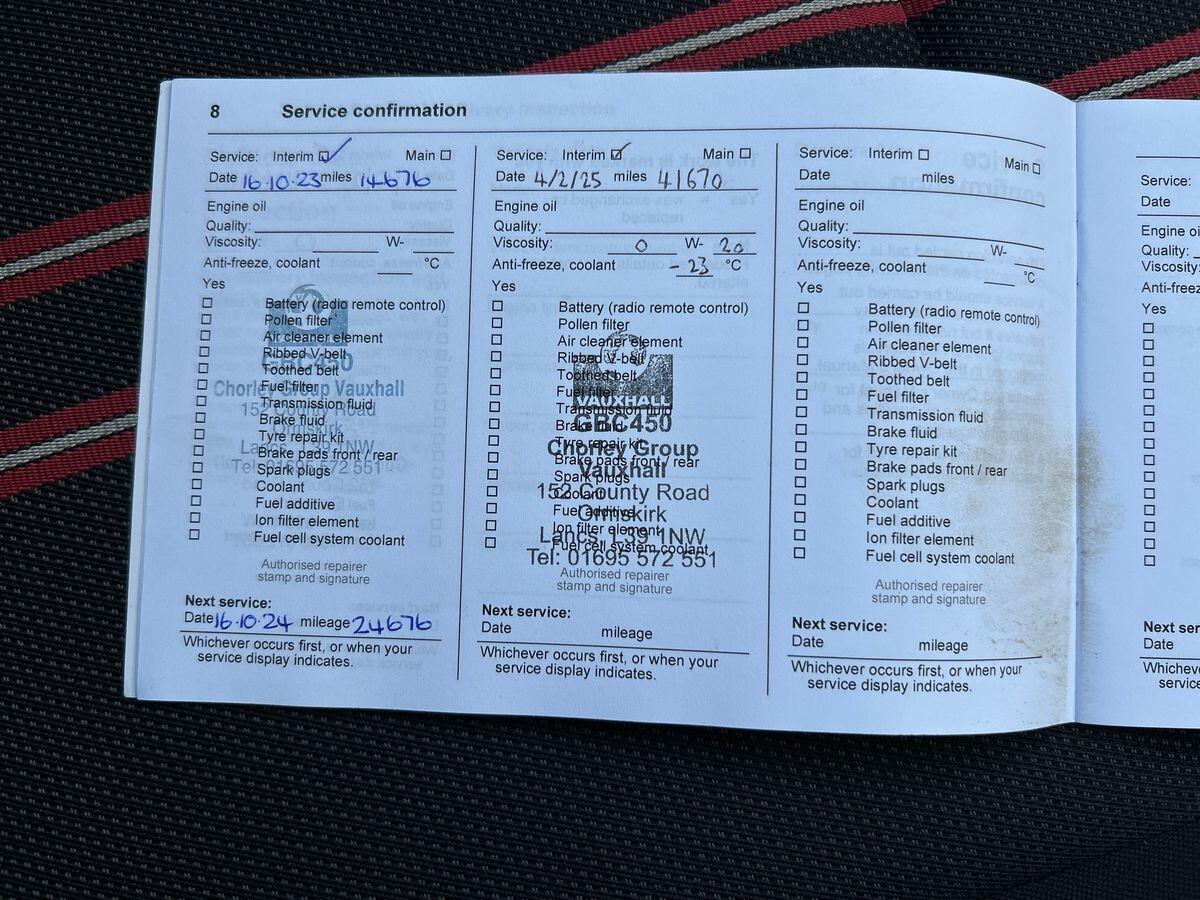 8 Service confirmation
Service: Interim ☑ Main ☐
Date 16.10.23 miles 14676
Engine oil
Quality:
Viscosity: W-
Anti-freeze, coolant °C
Yes
☐ Battery (radio remote control)
☐ Pollen filter
☐ Air cleaner element
☐ Ribbed V-belt
☐ Toothed belt
☐ Fuel filter
☐ Transmission fluid
☐ Brake fluid
☐ Tyre repair kit
☐ Brake pads front / rear
☐ Spark plugs
☐ Coolant
☐ Fuel additive
☐ Ion filter element
☐ Fuel cell system coolant
GBC450
Chorley Group Vauxhall
152 County Road
Ormskirk
Lancs L39 1NW
Tel: 01695 572 551
Authorised repairer
stamp and signature
Next service:
Date 16.10.24 mileage 24676
Whichever occurs first, or when your
service display indicates.
Service: Interim ☑ Main ☐
Date 4/2/25 miles 41670
Engine oil
Quality:
Viscosity: 0 W- 20
Anti-freeze, coolant -23 °C
Yes
☐ Battery (radio remote control)
☐ Pollen filter
☐ Air cleaner element
☐ Ribbed V-belt
☐ Toothed belt
☐ Fuel filter
☐ Transmission fluid
☐ Brake fluid
☐ Tyre repair kit
☐ Brake pads front / rear
☐ Spark plugs
☐ Coolant
☐ Fuel additive
☐ Ion filter element
☐ Fuel cell system coolant
VAUXHALL
GBC450
Chorley Group
Vauxhall
152 County Road
Ormskirk
Lancs L39 1NW
Tel: 01695 572 551
Authorised repairer
stamp and signature
Next service:
Date mileage
Whichever occurs first, or when your
service display indicates.
Service: Interim ☐ Main ☐
Date miles
Engine oil
Quality:
Viscosity: W-
Anti-freeze, coolant °C
Yes
☐ Battery (radio remote control)
☐ Pollen filter
☐ Air cleaner element
☐ Ribbed V-belt
☐ Toothed belt
☐ Fuel filter
☐ Transmission fluid
☐ Brake fluid
☐ Tyre repair kit
☐ Brake pads front / rear
☐ Spark plugs
☐ Coolant
☐ Fuel additive
☐ Ion filter element
☐ Fuel cell system coolant
Authorised repairer
stamp and signature
Next service:
Date mileage
Whichever occurs first, or when your
service display indicates.
Service:
Date
Engine oi
Quality:
Viscosity:
Anti-freez
Yes
Next ser
Date
Whichev
service